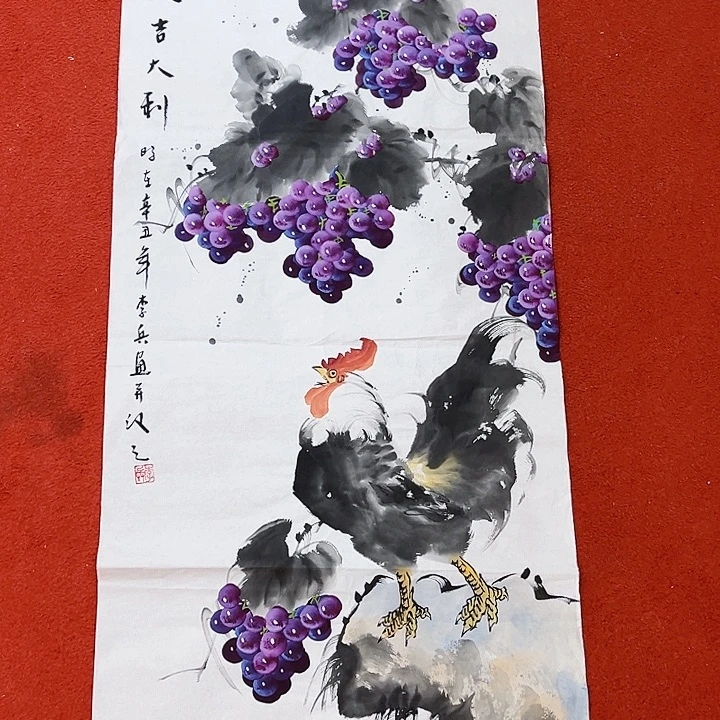 吉大利
时在辛丑年李兵画并汉之